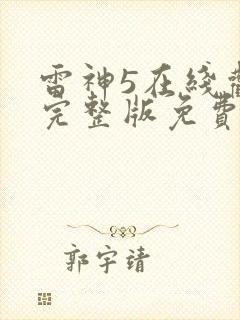 雷神5在綫觀
完整版免費
郭宇靖